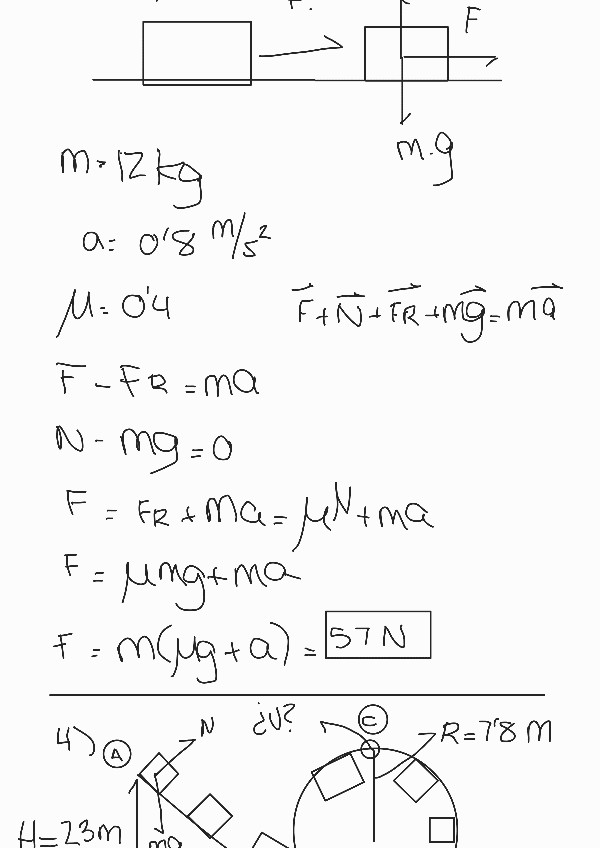 F
m.g
m = 12 kg
a = 0'8 m/s²
μ = 0'4
F⃗ + N⃗ + FR⃗ + mg⃗ = ma⃗
F - FR = ma
N - mg = 0
F = FR + ma = μN + ma
F = μmg + ma
F = m(μg + a) = 57 N
4) A N ¿V? C R = 7'8 M
H = 23m